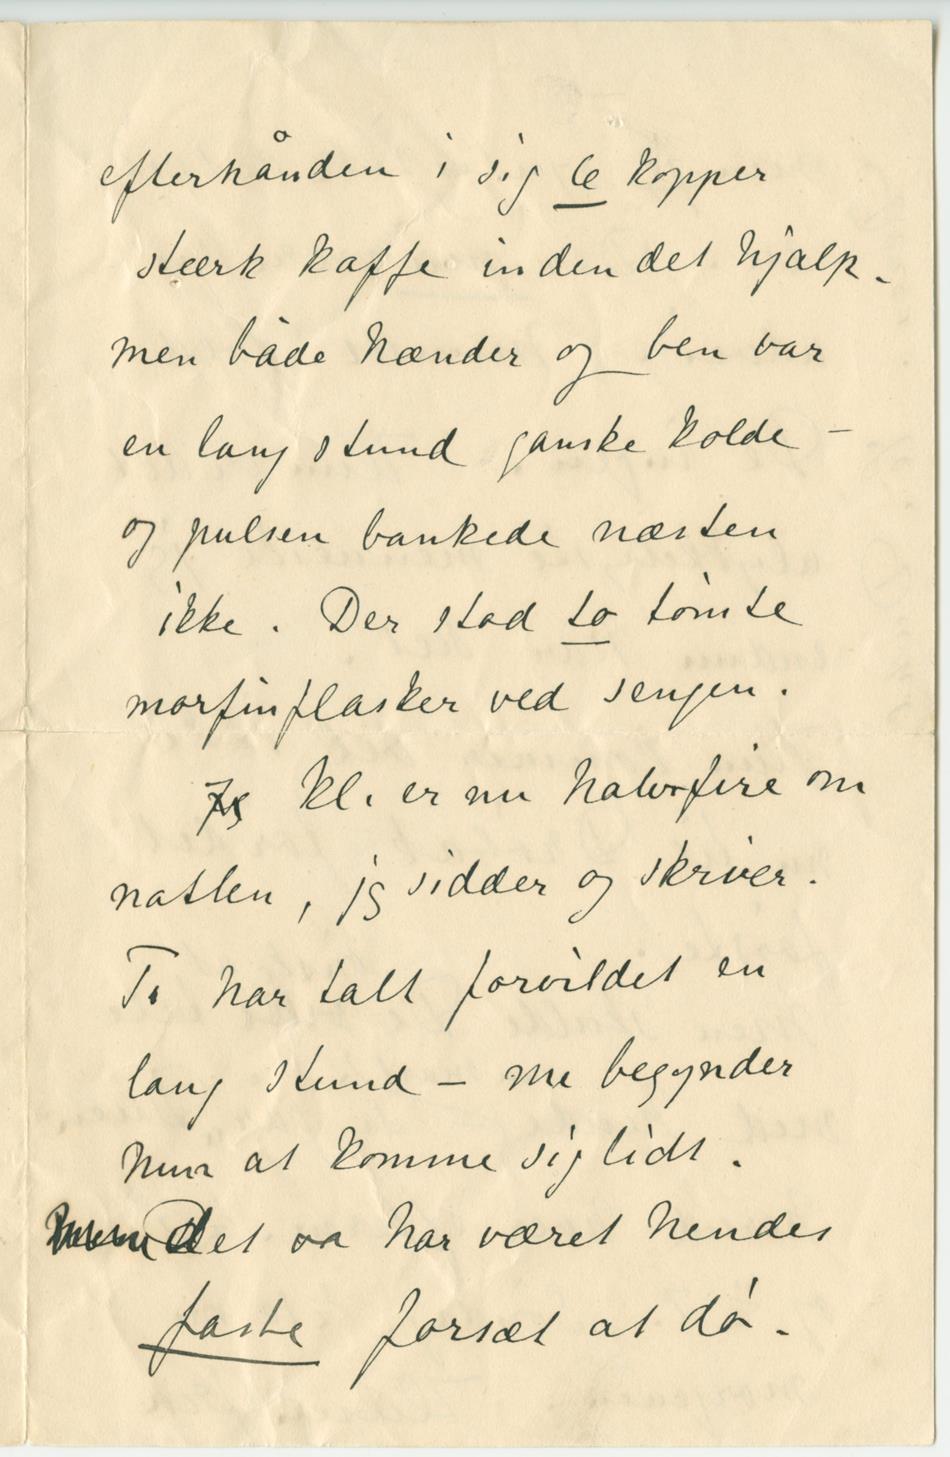 efterhånden i sig 6 kopper
stærk kaffe inden det hjalp.
men både hænder og ben var
en lang stund ganske kolde –
og pulsen bankede næsten
ikke. Der stod to tømte
morfinflasker ved sengen.
Jeg kl. er nu halvfire om
natten, jeg sidder og skriver.
Ti har talt forvildet en
lang stund – nu begynder
hun at komme sig lidt.
det har været hendes
faste forsæt at dø.